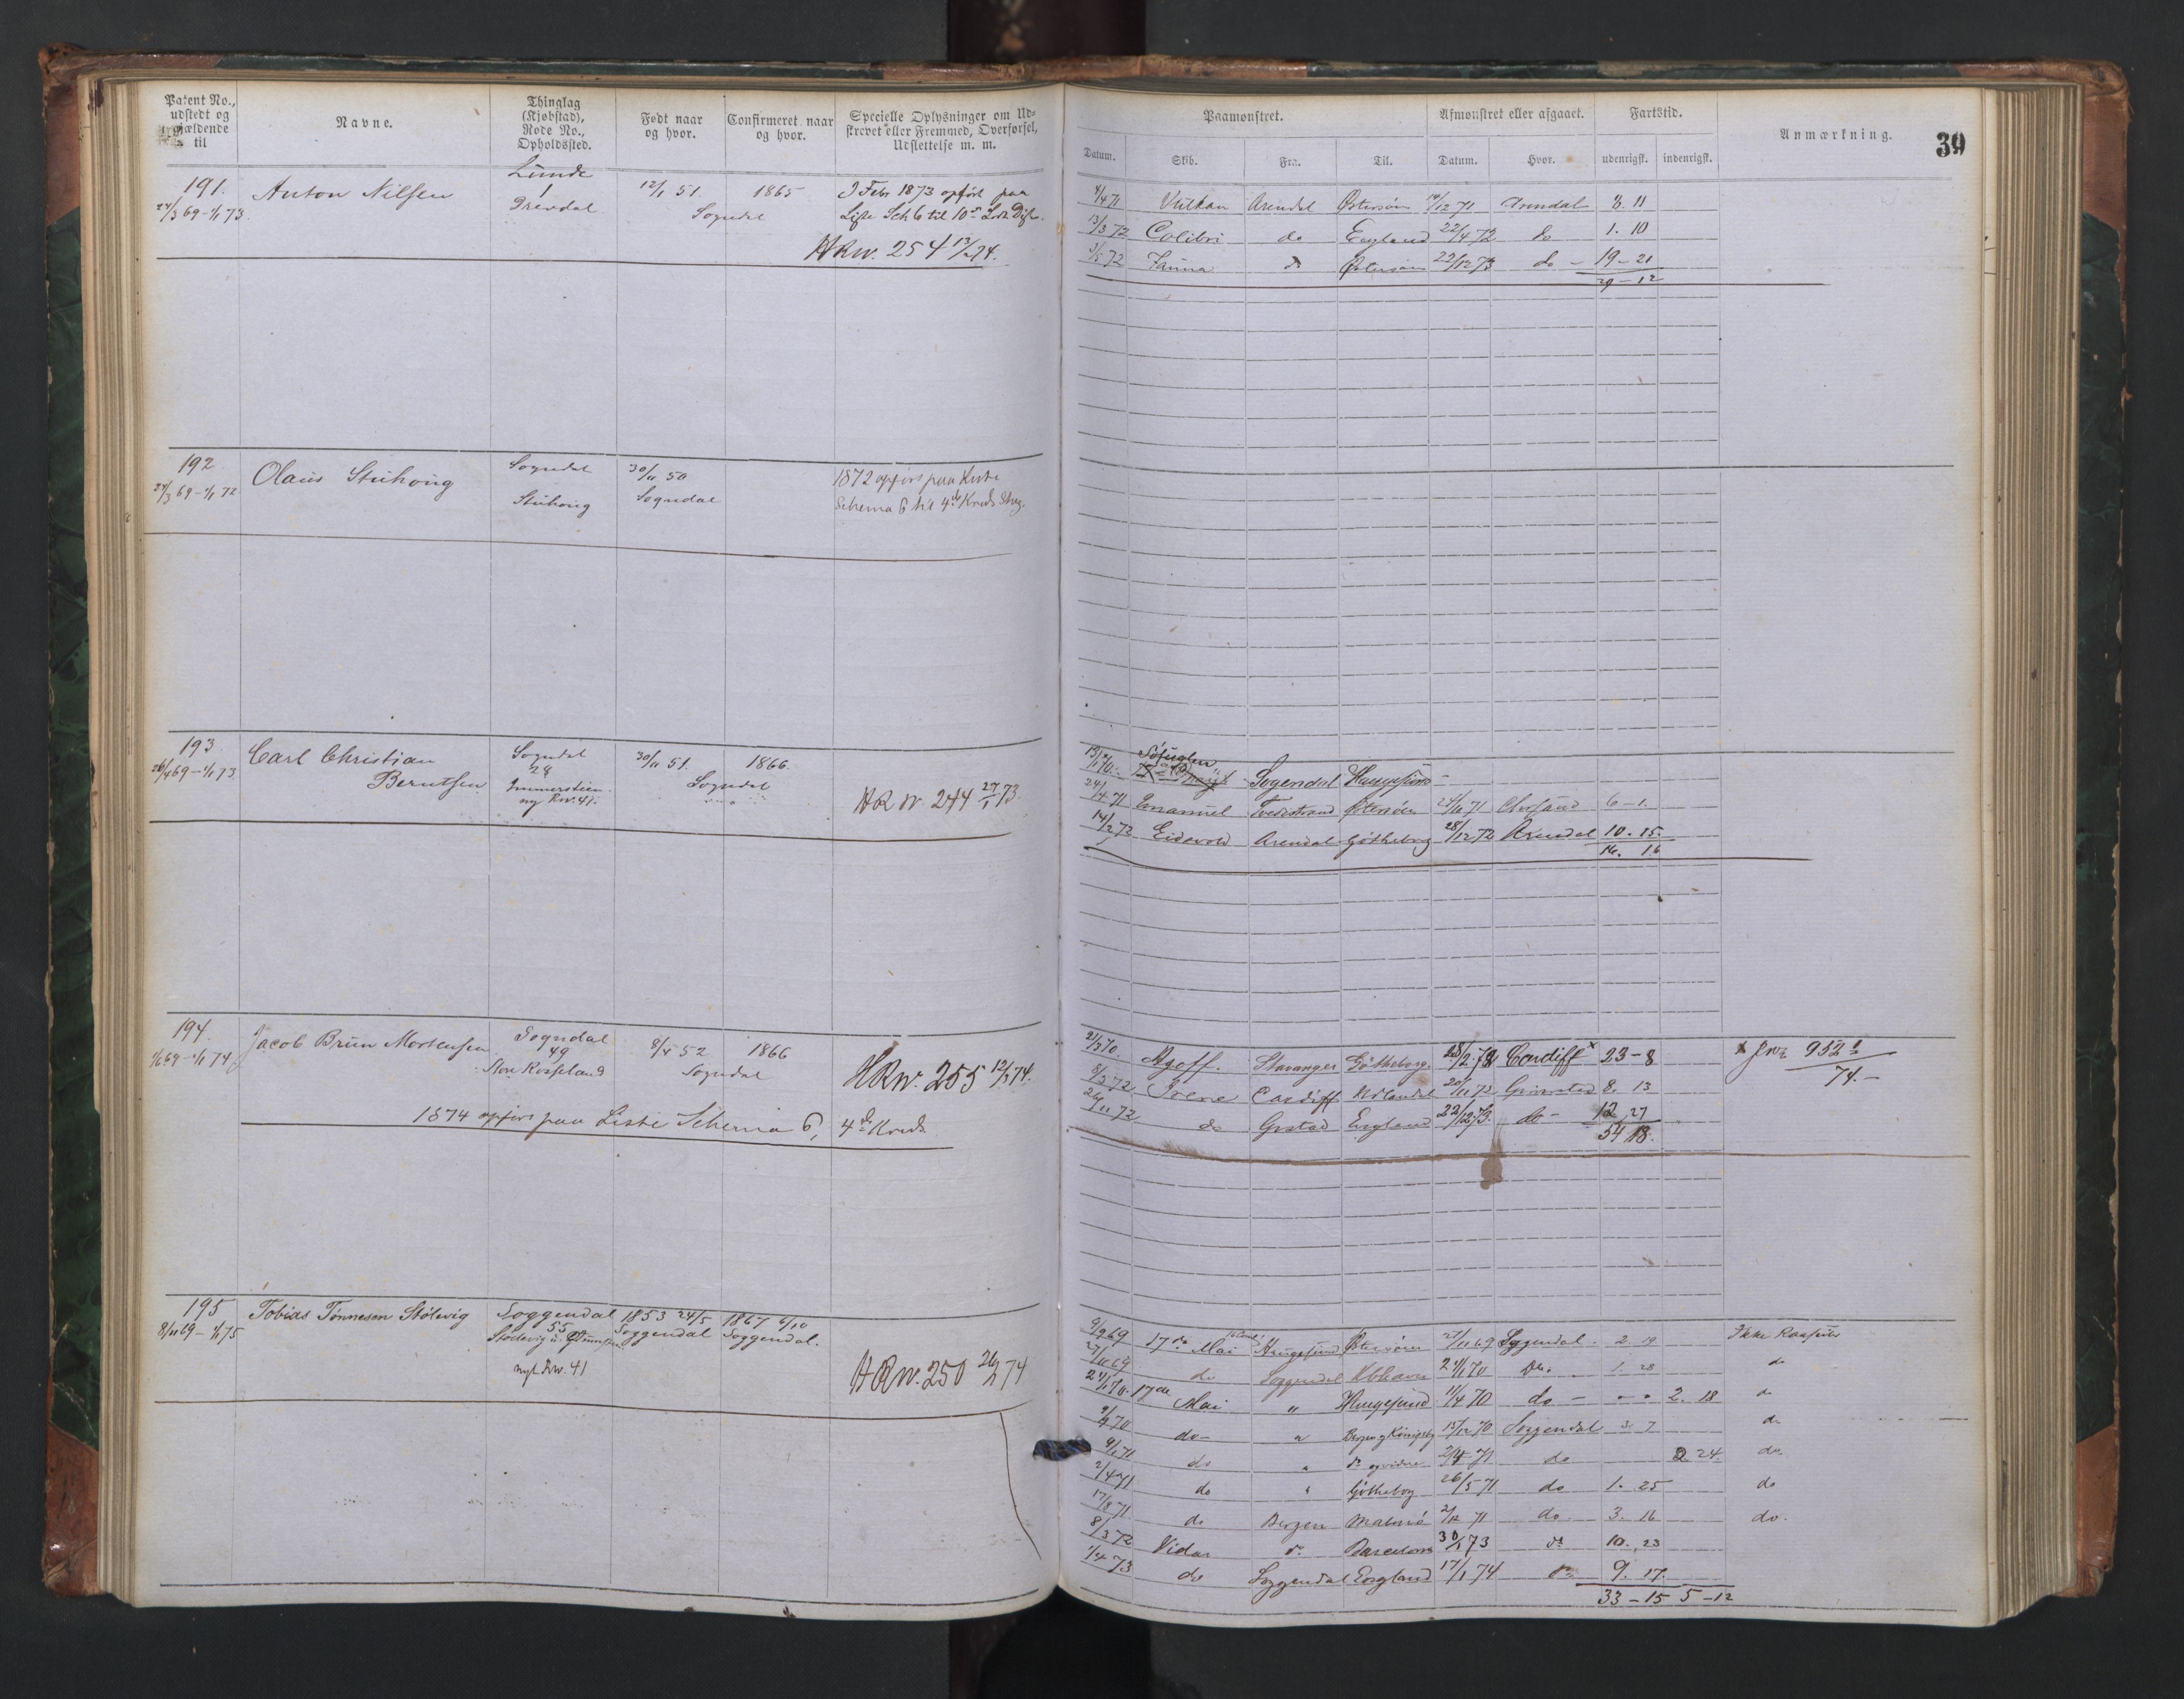 Patent No., udstedt og gjældende til
Navne.
Thinglag (Kjøbstad), Rode No., Opholdssted.
Født naar og hvor.
Confirmeret naar og hvor.
Specielle Oplysninger om Udskrevet eller Fremmed, Overførsel, Udslettelse m. m.
191.
24/3 69 - 1/1 73.
Anton Nilsen
Lunde
1
Drevdal
12/1 51.
1865
Sogndal
I Febr 1873 opført paa
Liste Sch 6 til
HRw. 254 13/2 74.
192
24/3 69 - 1/1 72
Olaus Stuhoug
Sogndal
Stuhoug
30/11 50
Sogndal
1872 opført paa Liste
Schema 6 til 4de Kreds
193
26/4 69 - 1/1 73
Carl Christian
Berntsen
Sogndal
28
ny Rw. 41.
30/11 51.
1866.
Sogndal
HR w 244 27/1 73
194.
1/1 74
Jacob Brun Mortensen
Sogndal
49
Store Rosseland
8/5 52
1866
Sogndal
HRw. 255 12/3 74.
1874 opført paa Liste Schema 6, 4de Kreds
195
8/11 69 - 1/1 75
Tobias Tønnesen Stølevig
Soggendal
55
nyt Rw. 41
1853 24/5
Soggendal
1867 6/10
Soggendal.
HRw. 250 26/2 74
Paamønstret.
Afmønstret eller afgaaet.
Fartstid.
Anmærkning.
39
Datum.
Skib.
Fra.
Til.
Datum.
Hvor.
udenrigsk.
indenrigsk.
4/4 71 Vulkan Arendal Østersøen 14/12 71 Arendal 8. 11
13/3 72 Colibri do England 22/4 72 do 1. 10
3/5 72 do Østersøen 22/12 73 do - 19 - 21
29 - 12
Søfuglen
Sogendal Haugesund -
24/4 71 Emanuel Tvedestrand Østersøen 24/10 71 6 - 1.
14/2 72 Eidsvold Arendal Gøtheborg 28/12 72 Arendal 10. 15.
16. 16
21/3 70. Stavanger Gøtheborg. 28/2. 72 Cardiff x 23 - 8
x 952
74. -
8/3 72 Cardiff 20/11 72 Grimstad 8. 13
26/11 72 do Grstad England 22/12 73. do - 12 27
54 18.
9/9 69 17de Mai Haugesund Østersøen 27/11 69 Soggendal. 2 19
27/11 69 do Soggendal Kbhavn 24/1 70 Do. 1. 28 do
24/1 70. 17de Mai " Haugesund 11/4 70 do - - " 2. 18 do
9/9 70 do - " 15/12 70 Soggendal 3. 7 do
9/1 71 do " do 2/4 71 do 2 24. do
2/4 71 do " Gøtheborg 26/5 71 do 1. 25 do
17/8 71 do Bergen Malmø 2/12 71 do 3. 16 do.
8/3 72 Vidar do 30/1 73 do 10. 23
1/4 73 do Soggendal England 17/1 74 do 9. 17.
33 - 15 5 - 12